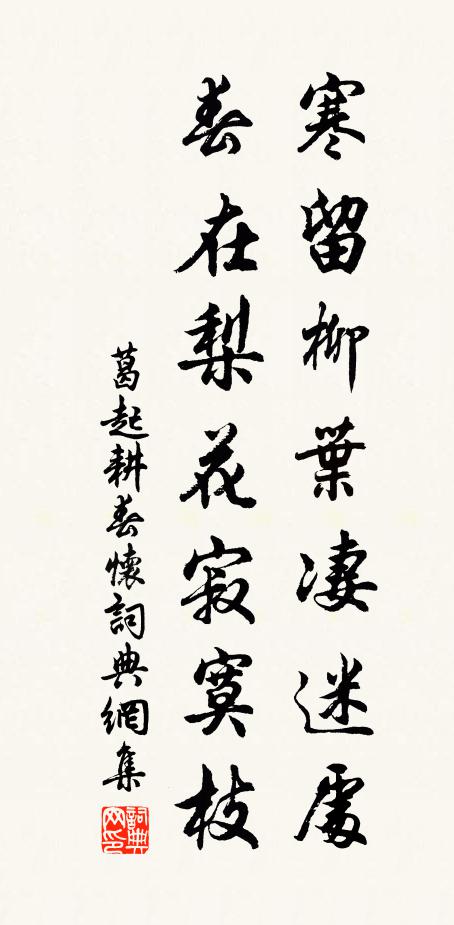 寒留柳葉淒迷處
春在梨花寂寞枝
葛起耕春懷詞典網集
詞典
网印